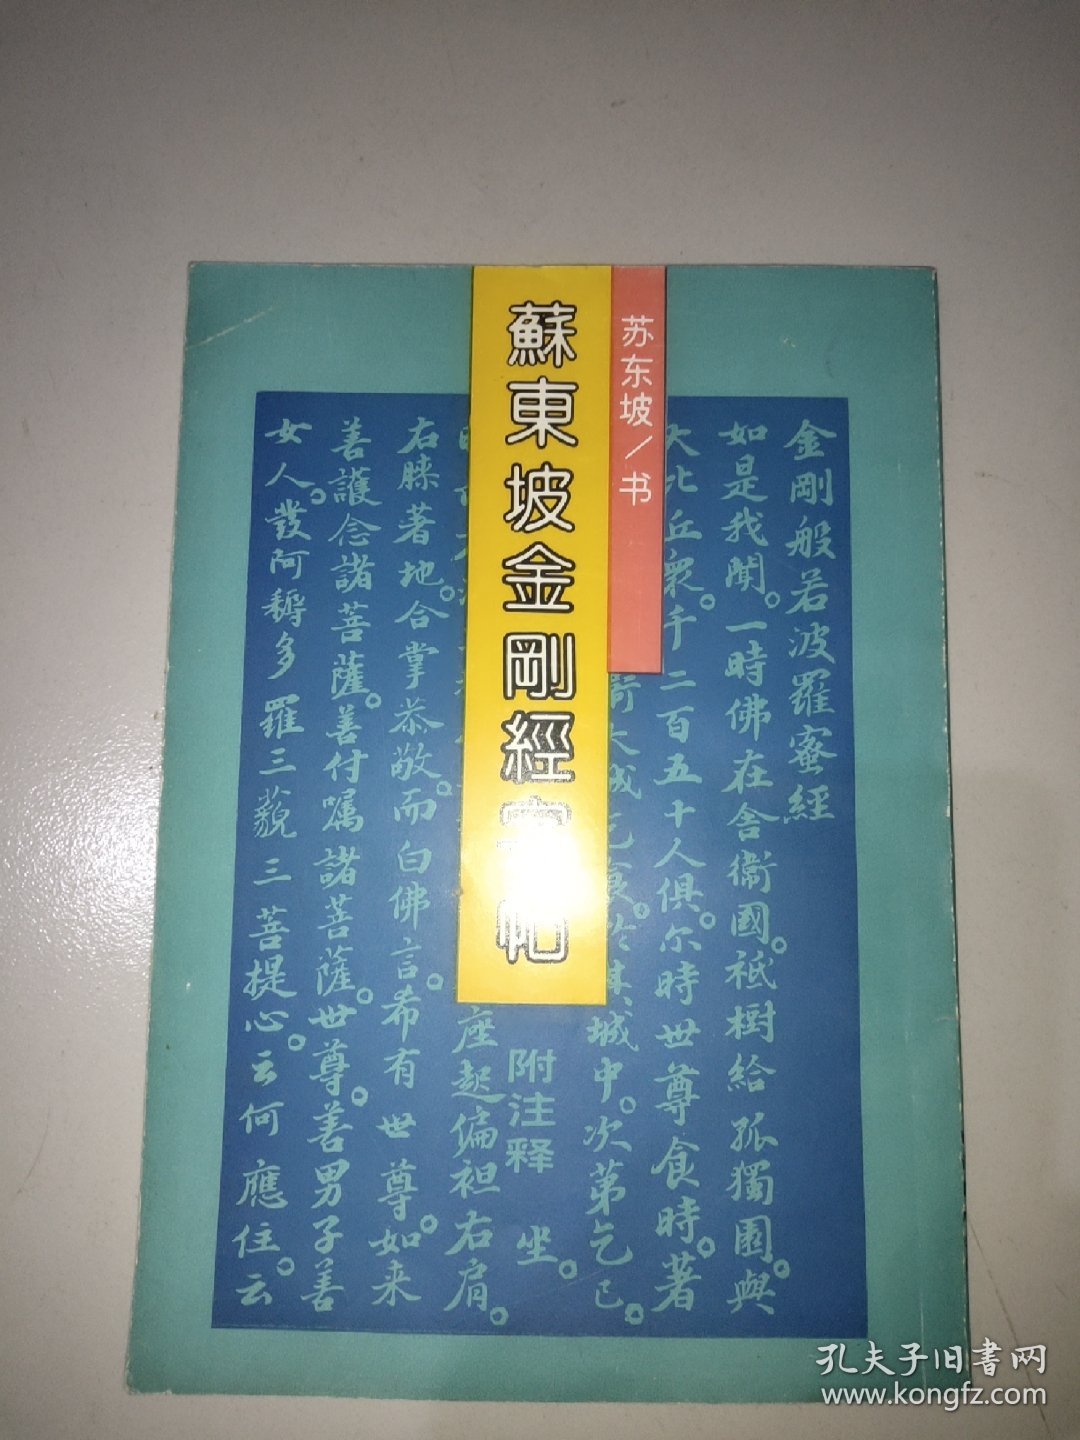 苏东坡/书
蘇東坡金剛經字帖
附注释
金剛般若波羅蜜經
如是我聞。一時佛在舍衞國。祇樹給孤獨園。與
大比丘衆。千二百五十人俱。尔時世尊食時。著
大城乞食。於其城中。次第乞已。
坐。
座起偏袒右肩。
右膝著地。合掌恭敬。而白佛言。希有世尊。如来
善護念諸菩薩。善付囑諸菩薩。世尊。善男子善
女人。發阿耨多羅三藐三菩提心。云何應住。云
孔夫子旧書网
www.kongfz.com